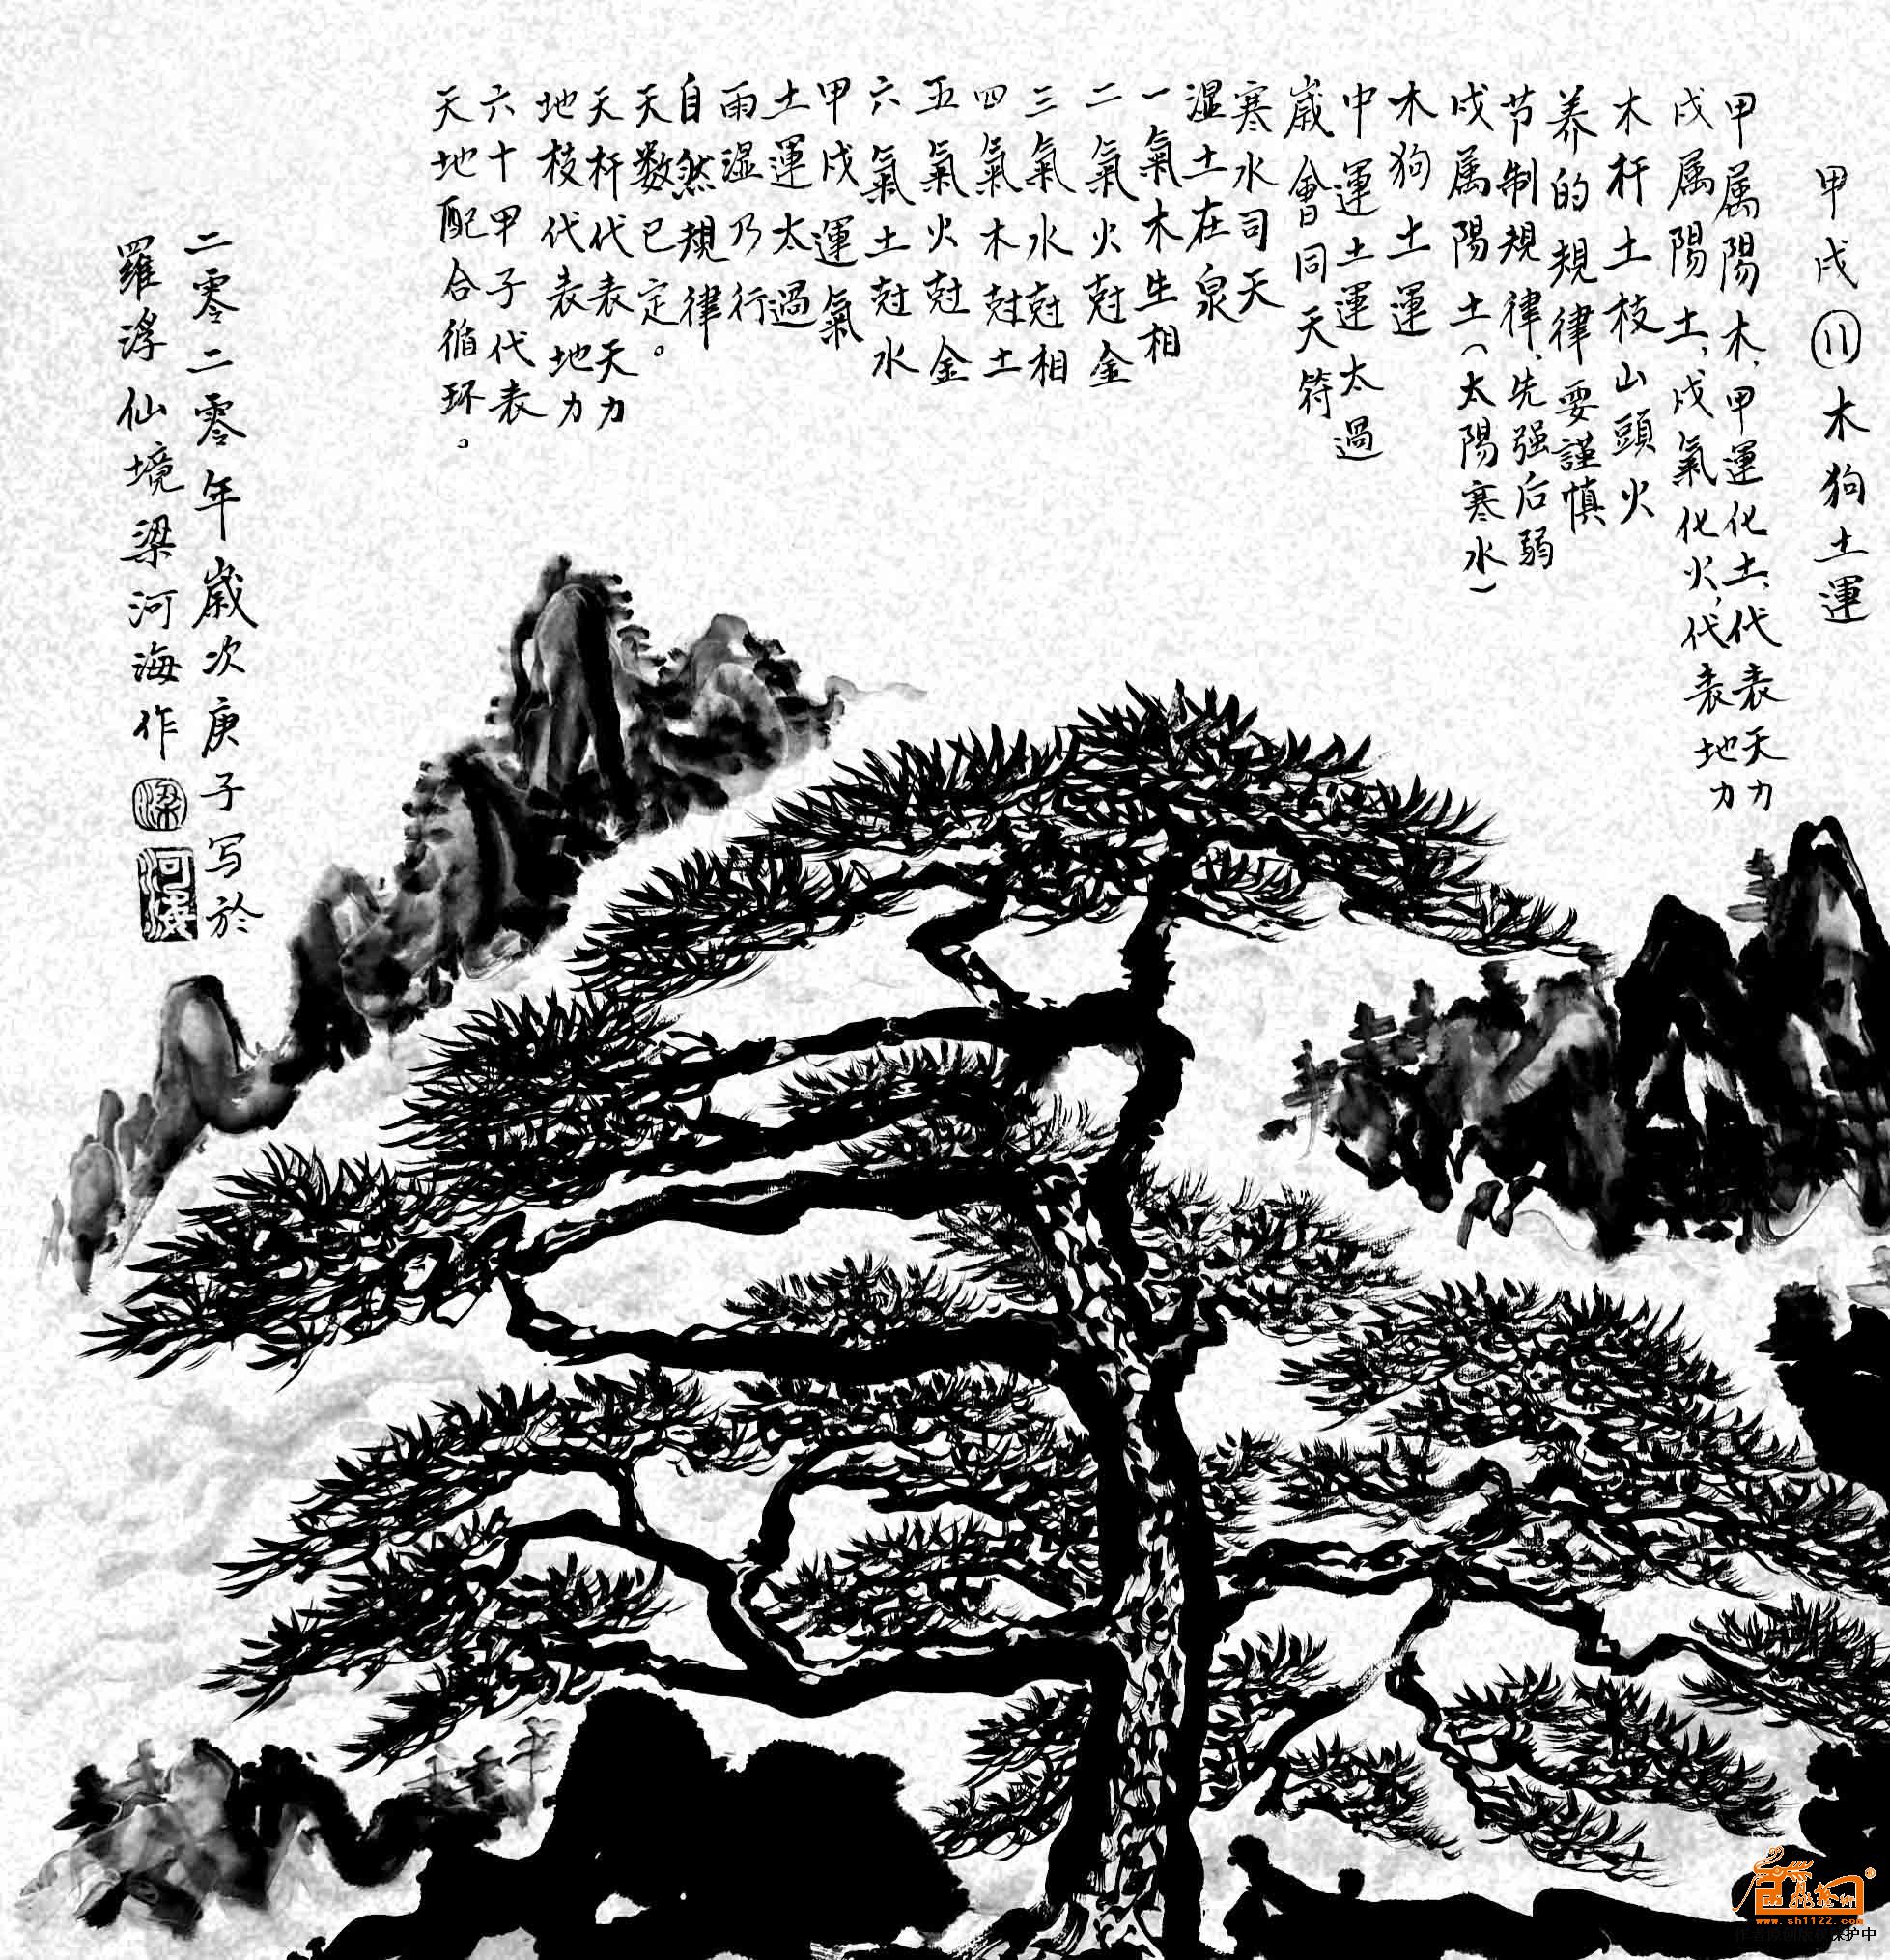 甲戌⑪木狗土運
甲属陽木，甲運化土，代表天力
戌属陽土，戌氣化火，代表地力
木杆土枝山頭火
养的規律要謹慎
节制規律，先强后弱
戌属陽土（太陽寒水）
木狗土運
中運土運太過
歲會同天符
寒水司天
湿土在泉
一氣木生相
二氣火尅金
三氣水尅相
四氣木尅土
五氣火尅金
六氣土尅水
甲戌運氣
土運太過
雨湿乃行
自然規律
天数已定。
天杆代表天力
地枝代表地力
六十甲子代表
天地配合循环。
二零二零年歲次庚子写於
羅浮仙境梁河海作
梁
河海
www.sh1122.com
作者原创版权保护中